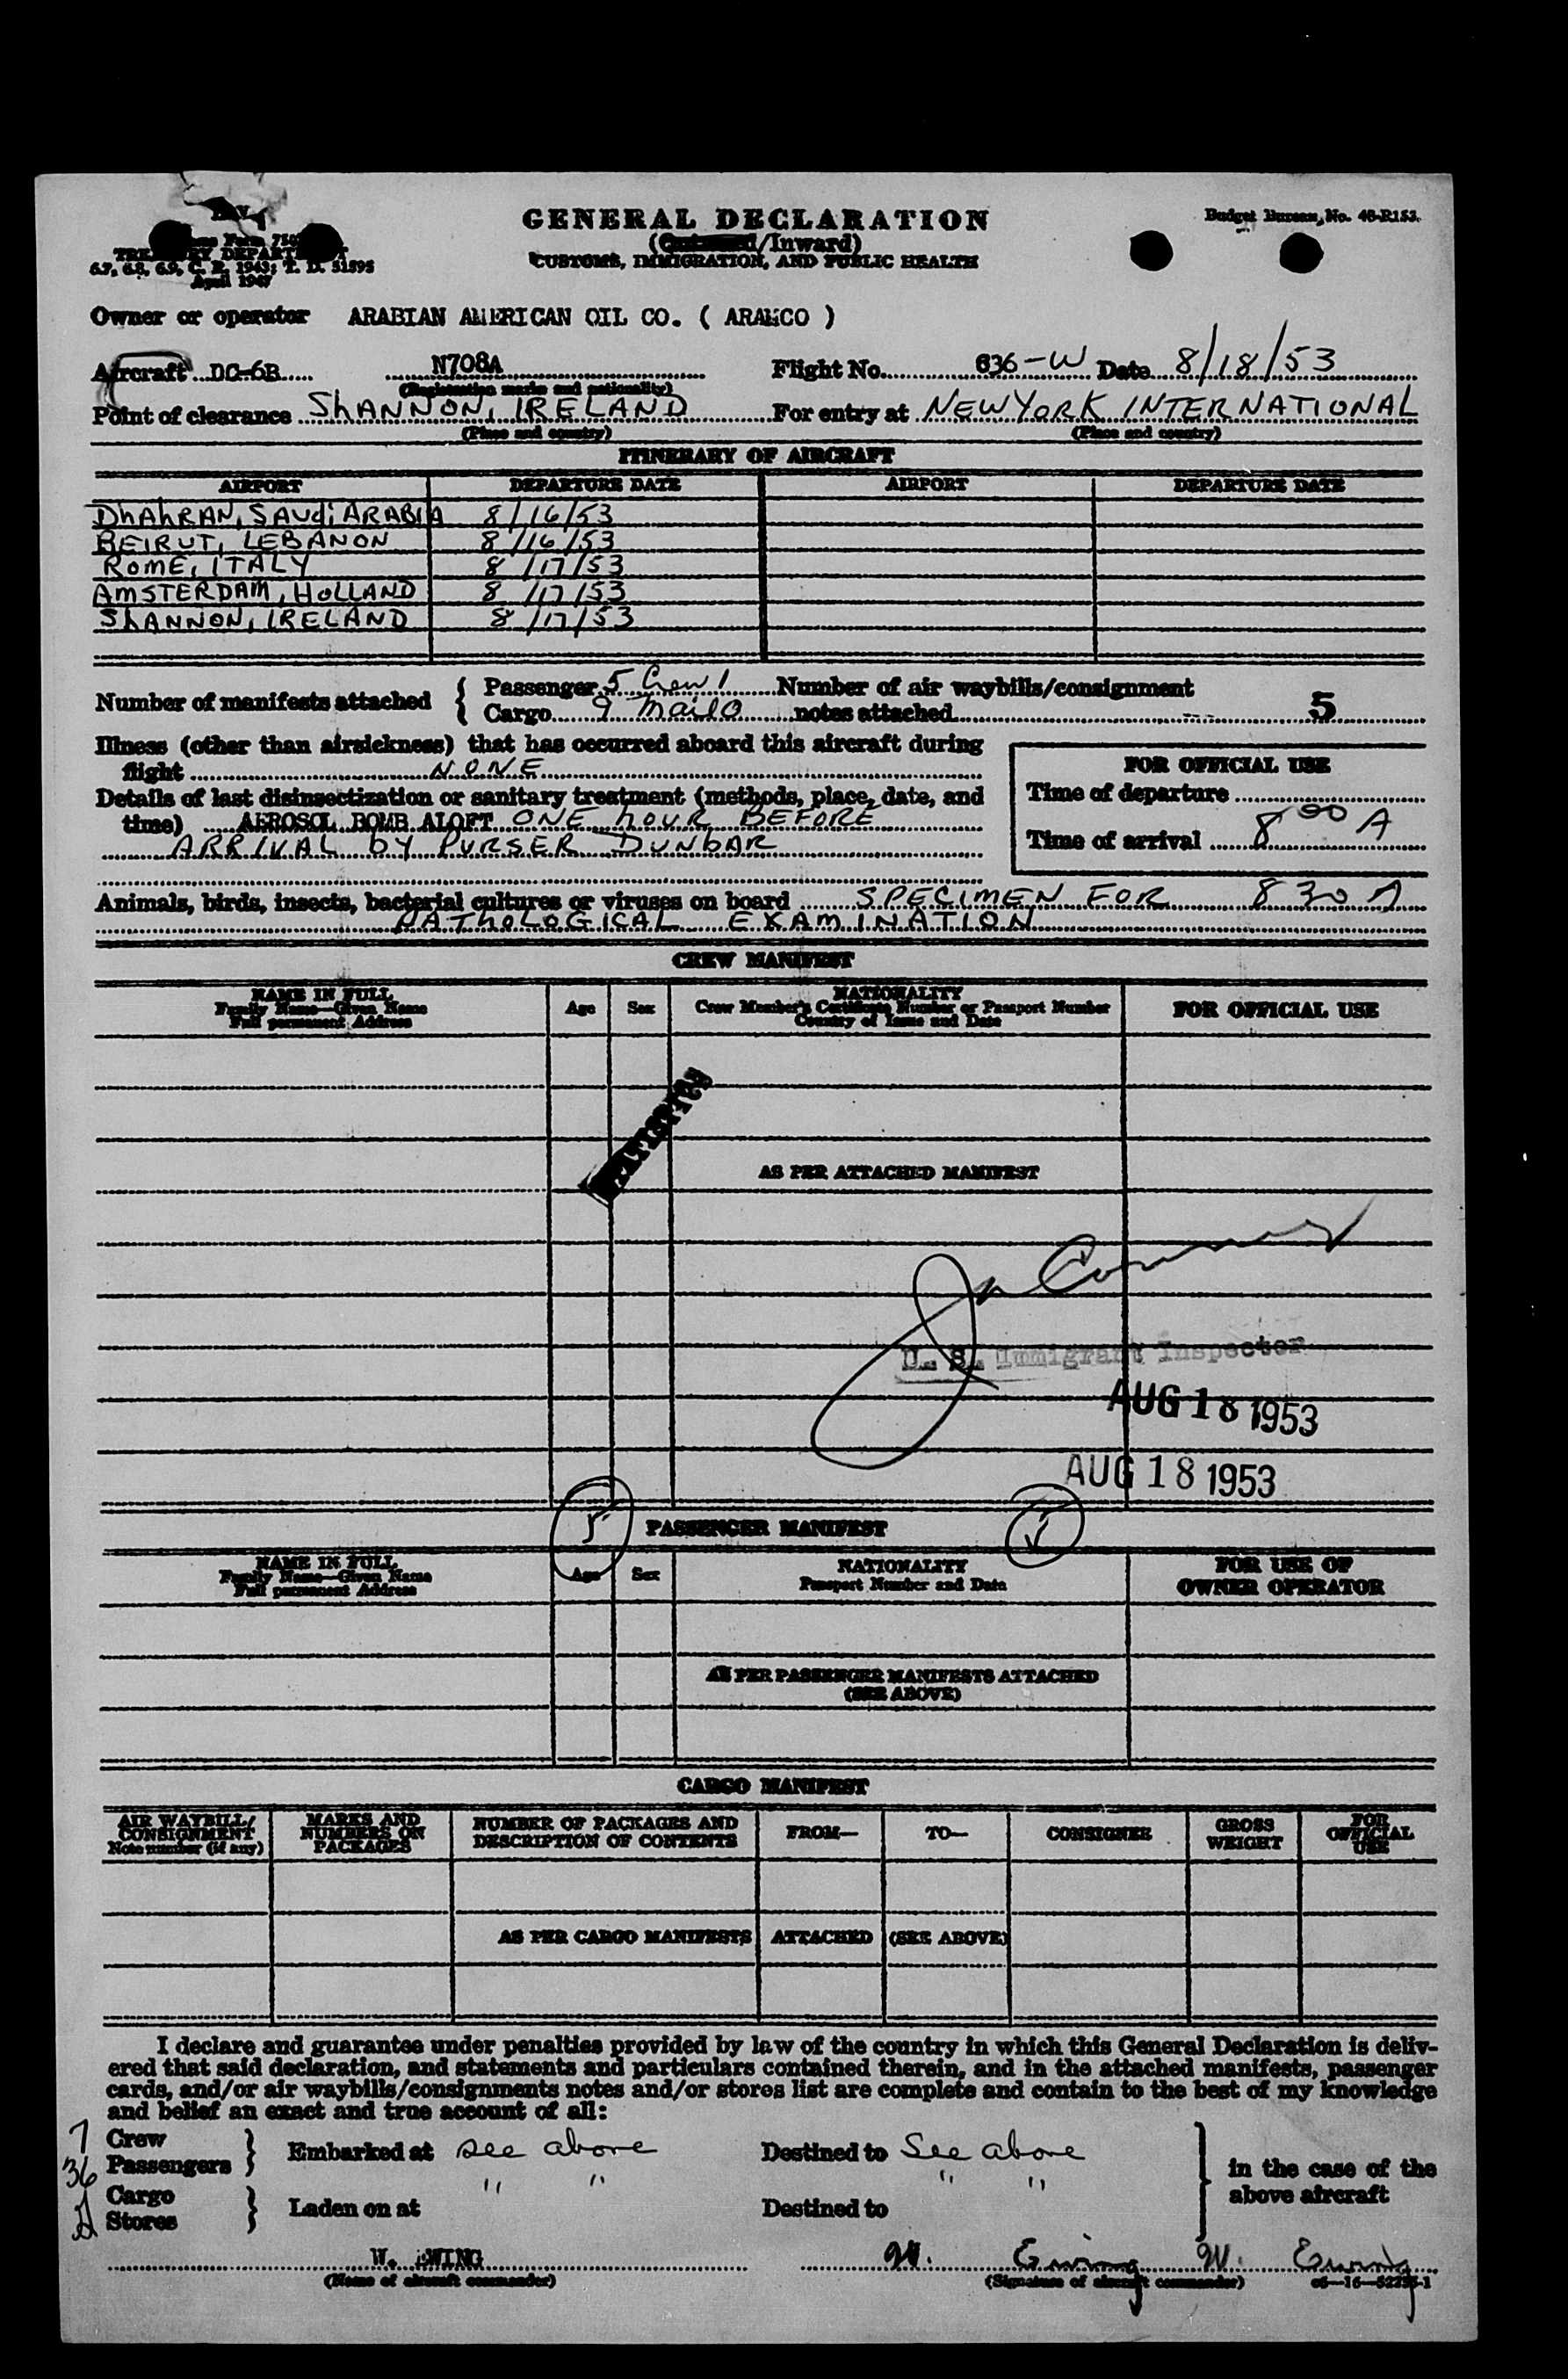 GENERAL DECLARATION
Budget Bureau, No. 48-R153.
(Outward/Inward)
TREASURY DEPARTMENT
CUSTOMS, IMMIGRATION, AND PUBLIC HEALTH
6.7, 6.8, 6.9, C. R. 1943; T. D. 51595
April 1947
Owner or operator ARABIAN AMERICAN OIL CO. ( ARAMCO )
Aircraft DC-6B N708A Flight No. 636-W Date 8/18/53
(Registration marks and nationality)
Point of clearance ShANNON, IRELAND For entry at NEW YORK INTERNATIONAL
(Place and country) (Place and country)
ITINERARY OF AIRCRAFT
AIRPORT DEPARTURE DATE AIRPORT DEPARTURE DATE
DhAhRAN, SAUdi ARABIA 8/16/53
BEIRUT, LEBANON 8/16/53
ROME, ITALY 8/17/53
AMSTERDAM, HOLLAND 8/17/53
ShANNON, IRELAND 8/17/53
Number of manifests attached { Passenger 5 Crew 1 Number of air waybills/consignment
Cargo 9 Mail 0 notes attached 5
Illness (other than airsickness) that has occurred aboard this aircraft during
flight NONE
FOR OFFICIAL USE
Details of last disinsectization or sanitary treatment (methods, place, date, and
Time of departure
time) AEROSOL BOMB ALOFT ONE hOUR BEFORE
Time of arrival 8 00 A
ARRIVAL by PURSER DUNbAR
Animals, birds, insects, bacterial cultures or viruses on board SPECIMEN FOR 8 30 A
PAThOLOGICAL EXAMINATION
CREW MANIFEST
NAME IN FULL Age Sex NATIONALITY FOR OFFICIAL USE
Family Name—Given Name Crew Member's Certificate Number or Passport Number
Full permanent Address Country of Issue and Date
AS PER ATTACHED MANIFEST
U. S. Immigrant Inspector
AUG 18 1953
AUG 18 1953
PASSENGER MANIFEST
NAME IN FULL Age Sex NATIONALITY FOR USE OF
Family Name—Given Name Passport Number and Date OWNER OPERATOR
Full permanent Address
AS PER PASSENGER MANIFESTS ATTACHED
(SEE ABOVE)
CARGO MANIFEST
AIR WAYBILL/ MARKS AND NUMBER OF PACKAGES AND FROM— TO— CONSIGNEE GROSS FOR
CONSIGNMENT NUMBERS ON DESCRIPTION OF CONTENTS WEIGHT OFFICIAL
Note number (if any) PACKAGES USE
AS PER CARGO MANIFESTS ATTACHED (SEE ABOVE)
I declare and guarantee under penalties provided by law of the country in which this General Declaration is deliv-
ered that said declaration, and statements and particulars contained therein, and in the attached manifests, passenger
cards, and/or air waybills/consignments notes and/or stores list are complete and contain to the best of my knowledge
and belief an exact and true account of all:
7 Crew } Embarked at see above Destined to See above } in the case of the
36 Passengers " " " " above aircraft
Cargo } Laden on at Destined to
Stores
W. EWING W. Ewing W. Ewing
(Name of aircraft commander) (Signature of aircraft commander)